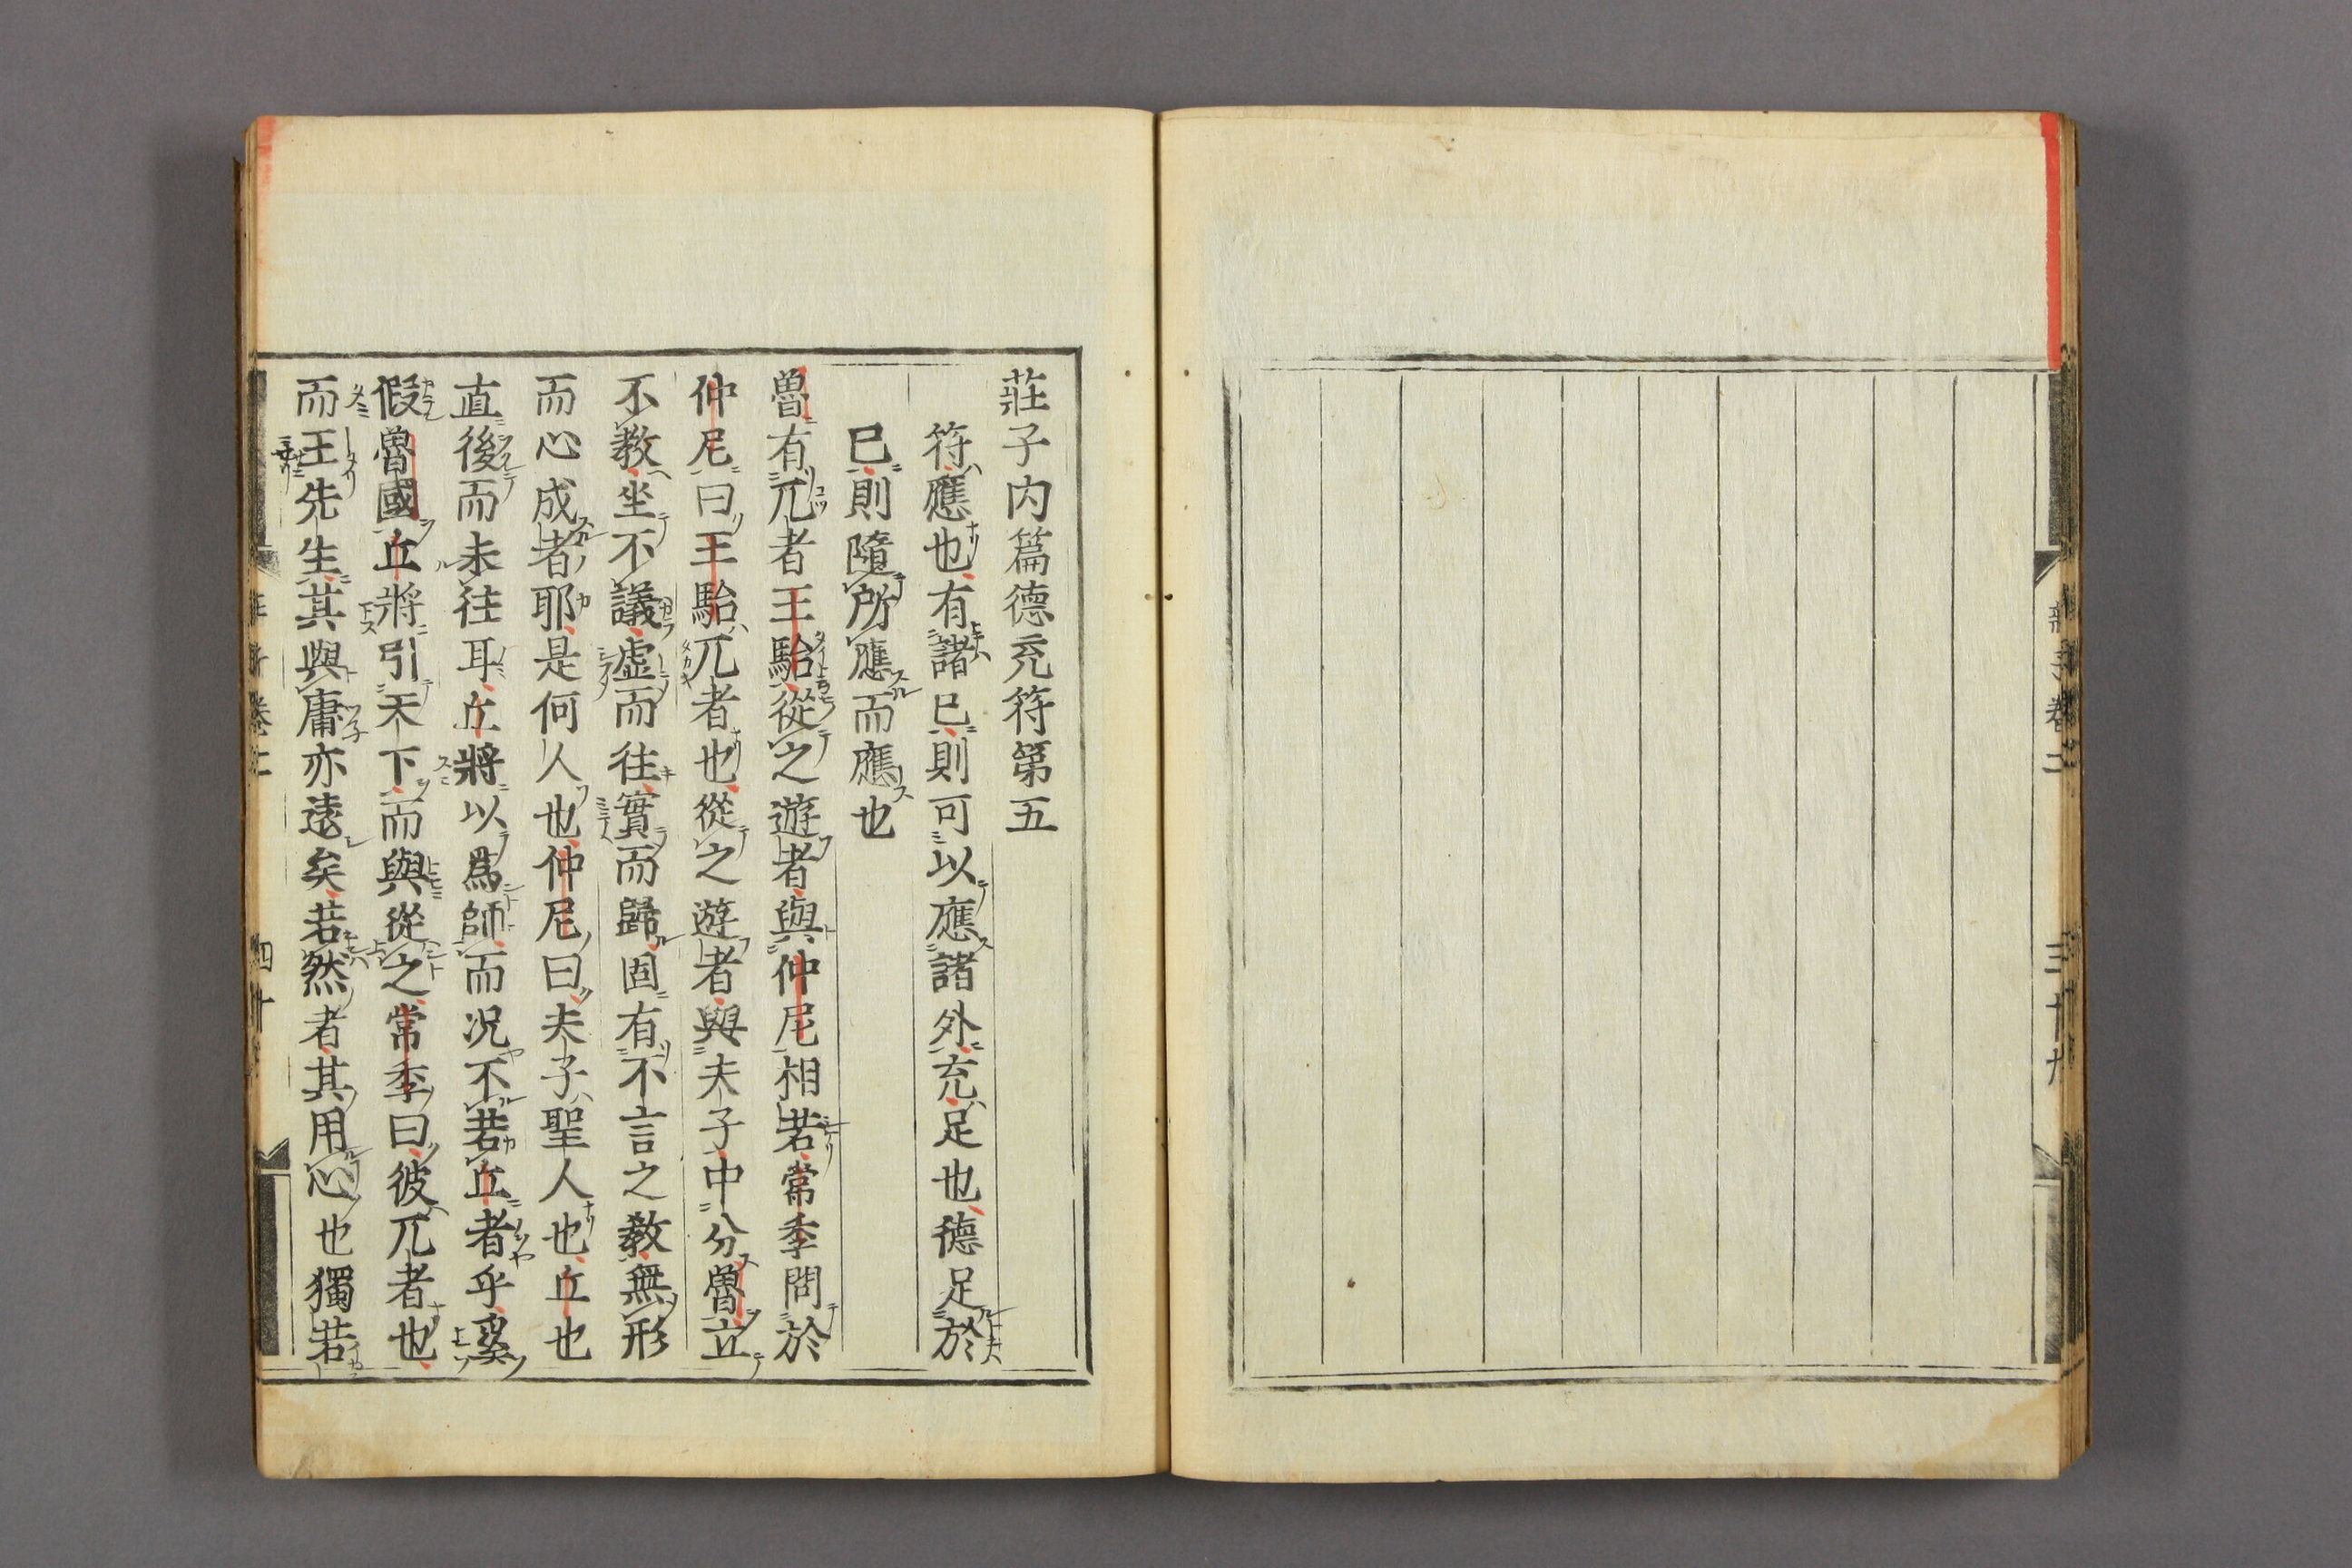 三十九
莊子内篇德充符第五
符應也有諸已則可以應諸外充足也德足於
已則隨所應而應也
魯有兀者王駘從之遊者與仲尼相若常季問於
仲尼曰王駘兀者也從之遊者與夫子中分魯立
不教坐不議虚而往實而歸固有不言之教無形
而心成者耶是何人也仲尼曰夫子聖人也丘也
直後而未往耳丘將以爲師而况不若丘者乎奚
假魯國丘將引天下而與從之常季曰彼兀者也
而王先生其與庸亦遠矣若然者其用心也獨若